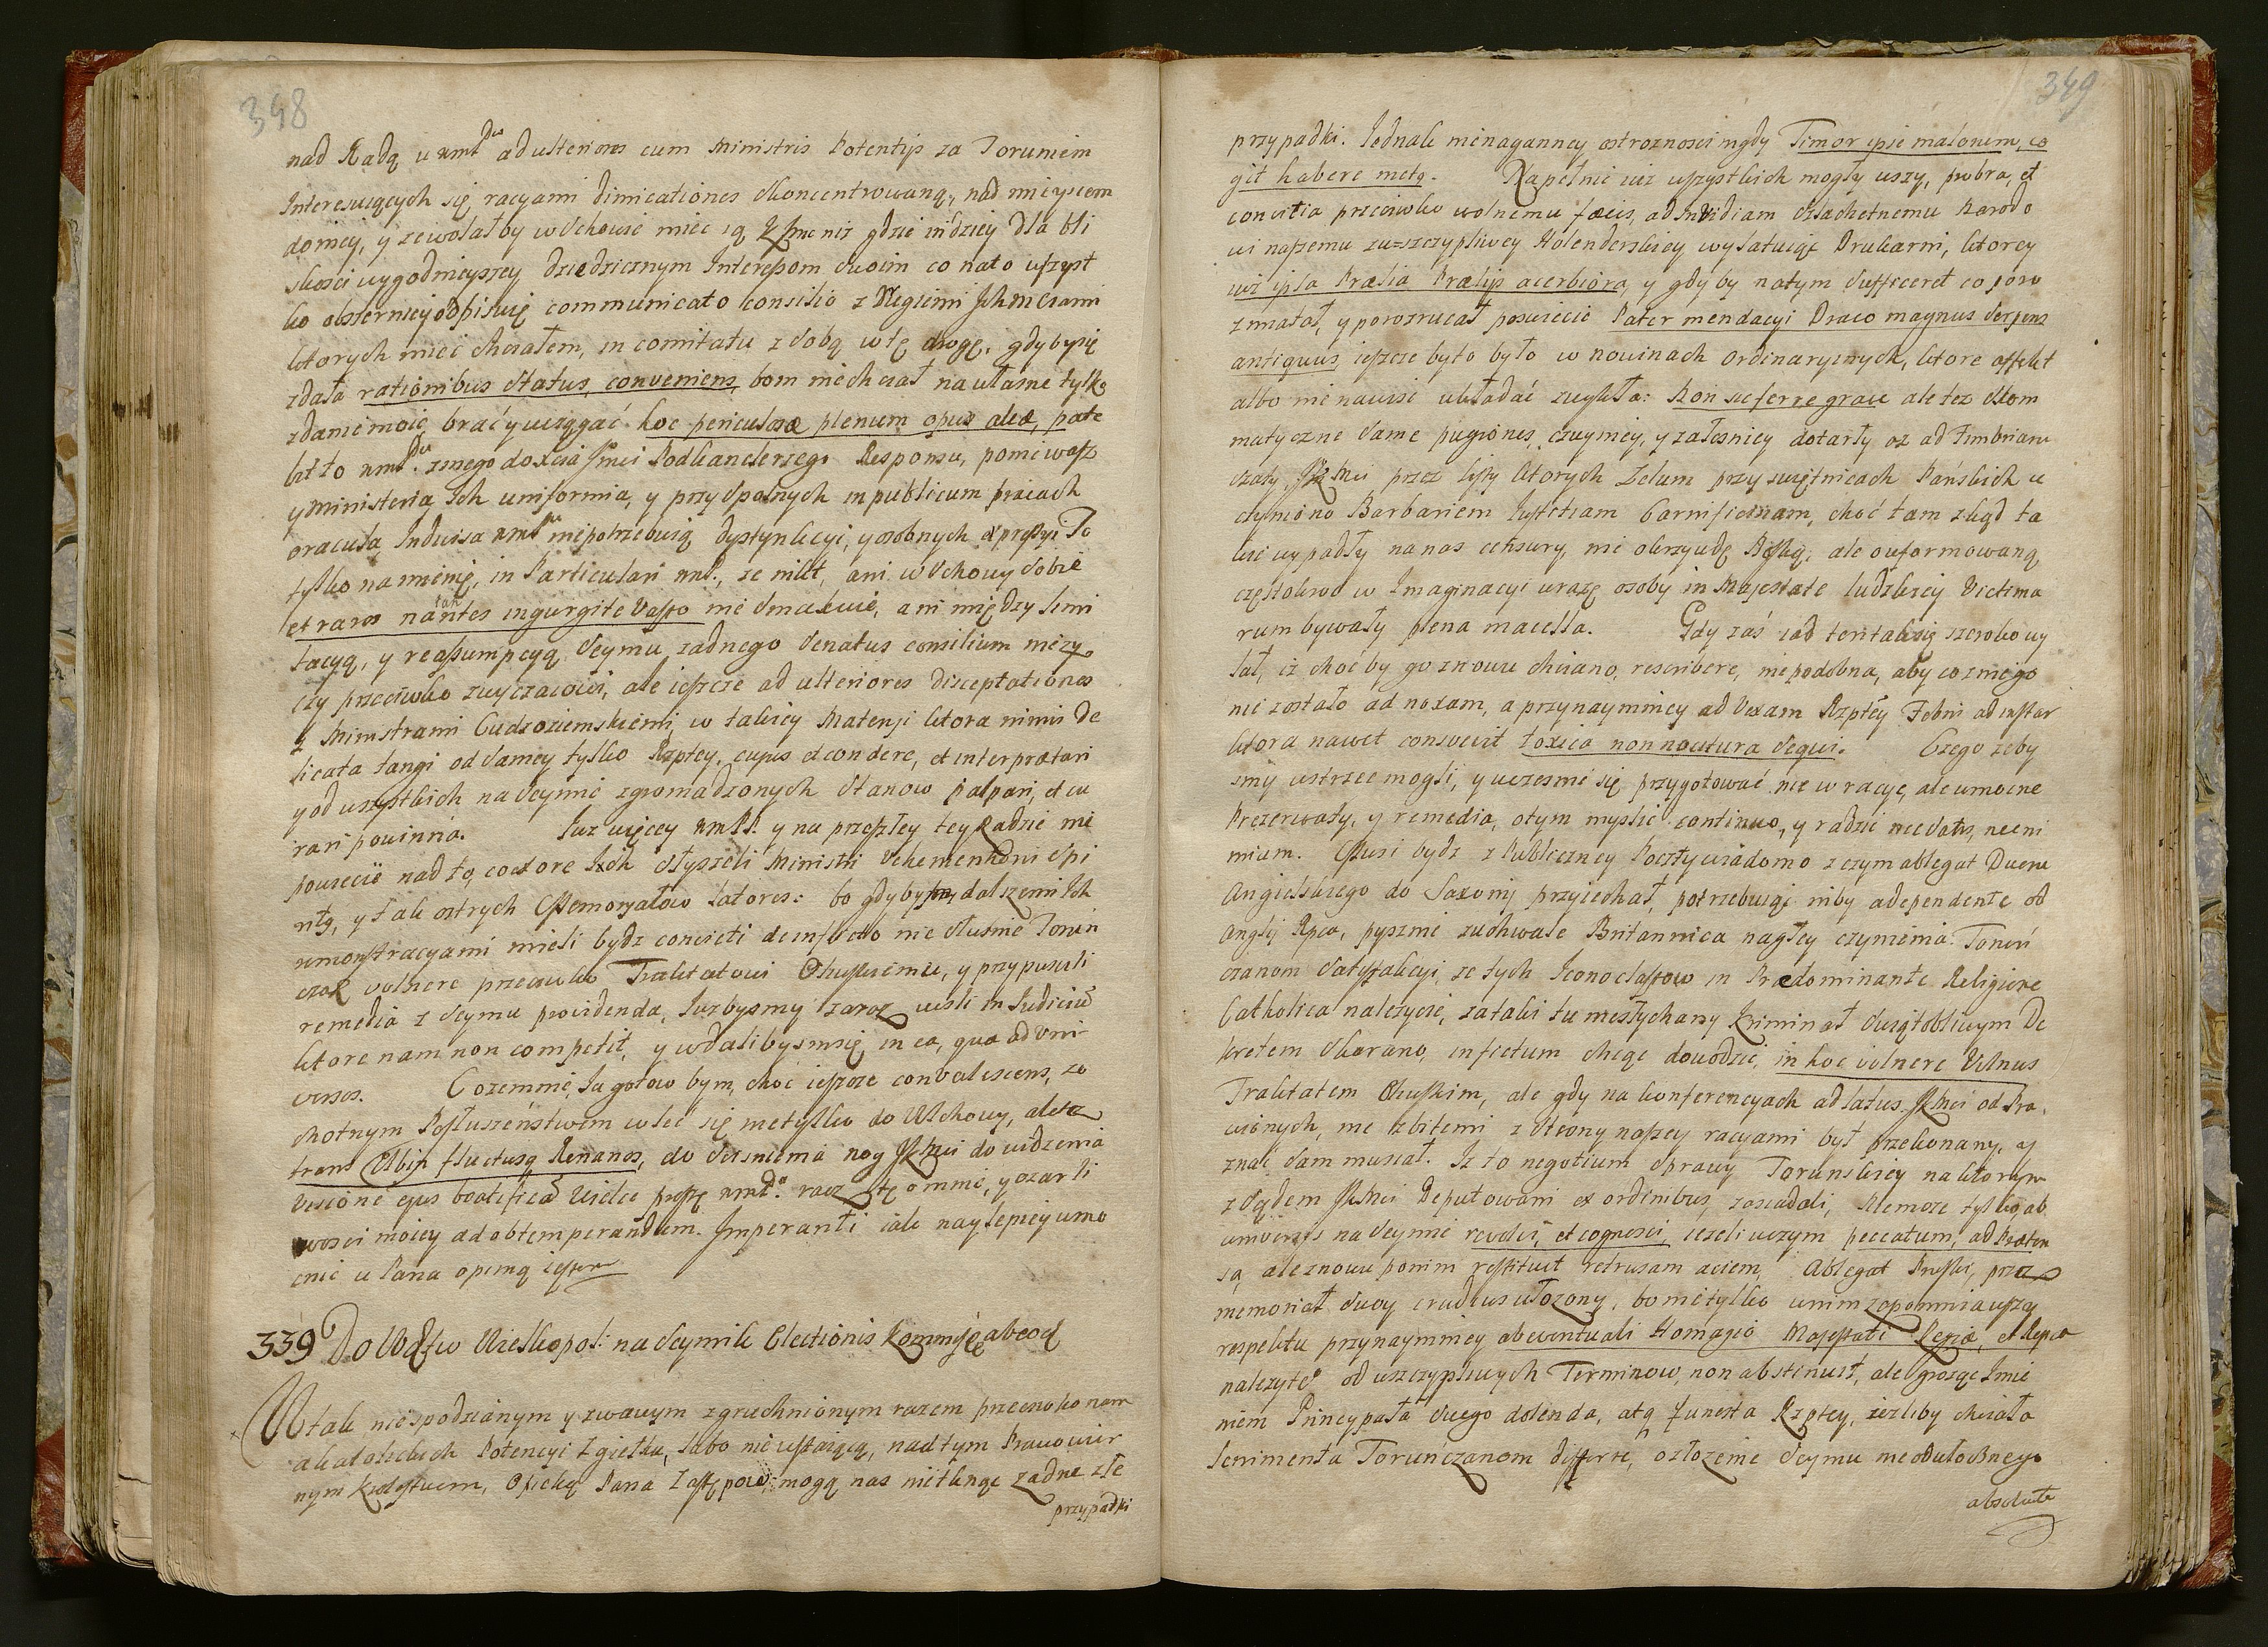 348
nad Radą u wmł ad ulteriores cum Ministris Potentijs za Toruniem
Interesuiących się racyami dimicationes skoncentrowaną, nad mieyscem
doniey, y zezwolałby w Schowie miec ią niz gdzie indziey dla bli
skosci wygodnieyszey dziedzicznym Interessom swoim co na to wszyst
ko obszerniey odpisuię communicato consilio z
ktorych miec chciałem, in comitatu z sobą w tę drogę, gdyby się
zdała rationibus status, conveniens, bom nie chciał na własne tylko
zdanie moie brać y wciągać hoc periculosæ plenum opus aleæ, pate
bit to zmego do Podkanclerzego Responsu, poniewasz
y ministeria Ich uniformia, y przy spolnych in publicum pracach
oracula Indivisa niepotrzebuią dystynkcyi, y osobnych expressyi To
tylko namienię, in Particulari, ze nikt, ani w Schowy sobie
et raros nantes in gurgite vasto nie smakuie, ani między limi
tacyą, y reassumpcyą Seymu zadnego Senatus consilium nie zy
czy przeciwko zwyczaiowi, ale ieszcze ad ulteriores disceptationes
z Ministrami Cudzoziemskiemi, w takiey Materyi ktora nimis de
licata tangi od samey tylko Rzptey, cuius et condere, et interpretari
y od wszystkich na Seymie zgromadzonych Stanow palpari, et cu
rari powinna. Iuz więcey y na przeszłey tey Radzie nie
powiecie nad to, co ktore Ich słyszeli Ministri Vehementioris Spi
ritus, y tak ostrych Memoryałow latores: bo gdyby dalszemi Ich
remonstracyami mieli bydz convicti de infracto nie słusznie Torun
czak vulnere przeciwko Traktatowi Oliwskiemu, y przypuscili
remedia z Seymu providenda, Iuzbysmy zaraz weszli in Iudicium
ktore nam non competit, y wdalibysmy się in ea, quæ ad Uni
versos. Co ze mnie, Ia gotow bym, choc ieszcze convalescens, zo
chotnym Posłuszeństwem wlec się nietylko do Wschowy, ale
trans Albis fluctusq Renanos, do scisnienia nog do widzenia
Visione ejus beatifica Wielce proszę racz tę o mnie, y ozarli
wosci moiey ad obtemperandum Imperanti iak naylepiey umo
cnić u Pana opinią iestem
339 Do Wdztw Wielkopol: na Seymik Electionis Kommissę ab eod
W tak niespodzianym y zwawym zgruchnionym razem przeciwko nam
akatolickich Potencyi Zgiełku, Iabo nie ustaiącą, nad tym Prawowier
nym Krolestwem, Opieką Pana Zastępow: mogą nas nietknąc zadne złe
przypadki
349
przypadki. Iednak nienaganney ostroznosci nigdy Timor ipse malorum, co
git habere metą. Napełnic iuz wszystkich mogły uszy, probra, et
convitia przeciwko wolnemu fœcis, ad invidiam szlachetnemu Narodo
wi naszemu z uszczypliwey Holenderskiey wylatuiąc Drukarni, ktorey
iuz ipsa Prælia Prælijs acerbiora, y gdyby na tym sufficeret co ioro
zmiatał, y porozrucał po swiecie Pater mendacyi Draco magnus Serpens
antiquus ieszcze było było w nowinach ordinarycznych, ktore affekt
albo nienawisc układać zwykła: Non sic ferre grave ale tez Skom
matyczne same pugiones, czuyniey, y załosniey dotarły az ad Fimbriam
szaty przez listy ktorych Zelum przy swiętnicach Pańskich u
czyniono Barbariem Iustitiam Carnificinam, choć tam zkąd ta
kie wypadły na nas censury, nie o krzywdę Boską, ale o uformowaną
częstokroc w Imaginacyi urazę osoby in Majestate ludzkiey Victima
rum bywały plena macella. Gdy zaś iad ten tak się szeroko wy
lał, iz choc by go znowu chciano, rescribere, niepodobna, aby co z niego
nie zostało ad noxam, a przynaymniey ad Vexam Rzptey Febris ad instar
ktora nawet consvevit toxica non noxitura sequi. Czego zeby
smy ustrzec mogli, y wczesnie się przygotować nie w racye, ale umocne
Prezerwaty, y remedia, o tym myslic continuo, y radzic nec satis, nec ni
mium. Musi bydz z Publiczney Poczty wiadomo z czym ablegat Dworu
Angielskiego do Saxonij przyiechał, potrzebuiąc niby a dependente od
Anglij Rpca, pysznie zuchwale Britannica nagłey czynienia Toruń
czanom satysfakcyi, ze tych Iconoclastow in Prædominante Religione
Catholica nalezycie, za taki tu niesłychany Kriminał swiątobliwym De
kretem skarano, infectum chcąc dowodzic, in hoc vulnere Vilnus
Traktatem Oliwskim, ale gdy na konferencyach ad latus od Pra,
wionych, nie zbitemi z strony naszey racyami był przekonany, y
znać sam musiał. Iz to negotium sprawy Torunskiey na ktorym
z Sądem Deputowani ex ordinibus zasiadali, Niemoze tylko ab
universis na Seymie revidi, et cognosci, iezeli w czym peccatum, ad Præten
są ale znowu ponim restituit retrusam aciem, Ablegat Pruski, przez
memoriał swoy crudius ułozony, bo nietylko w nim zapomniawszą
respektu przynaymniey ab eventuali Homagio Majestati Regiæ, et Repcæ
nalezyte od uszczypliwych Terminow, non abstinuit, ale grosząc Imie
niem Pryncypała swego dolenda, atą funesta Rzptey, iezliby chciała
lenimenta Toruńczanom differre, oztozenie Seymu nieodwłocznego
absolute